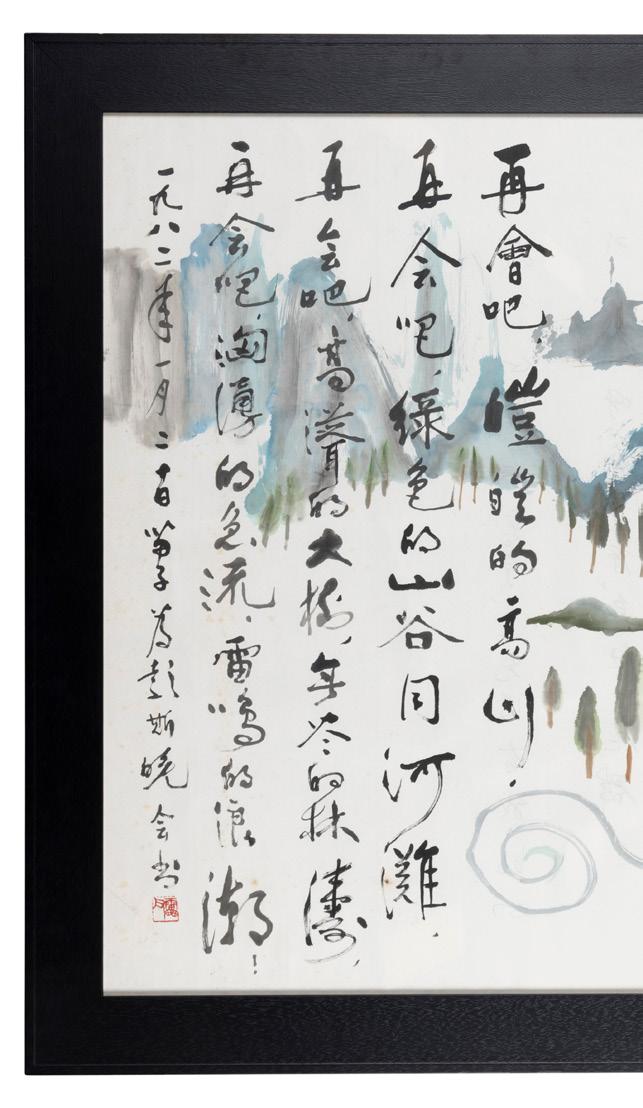 再會吧，皚皚的高山，
再会吧，綠色的山谷同河灘，
再会吧，高聳的大樹，無尽的林濤，
再会吧，洶湧的急流，雷鳴的浪潮！
一九八二年一月二十日 為彭斯曉会书